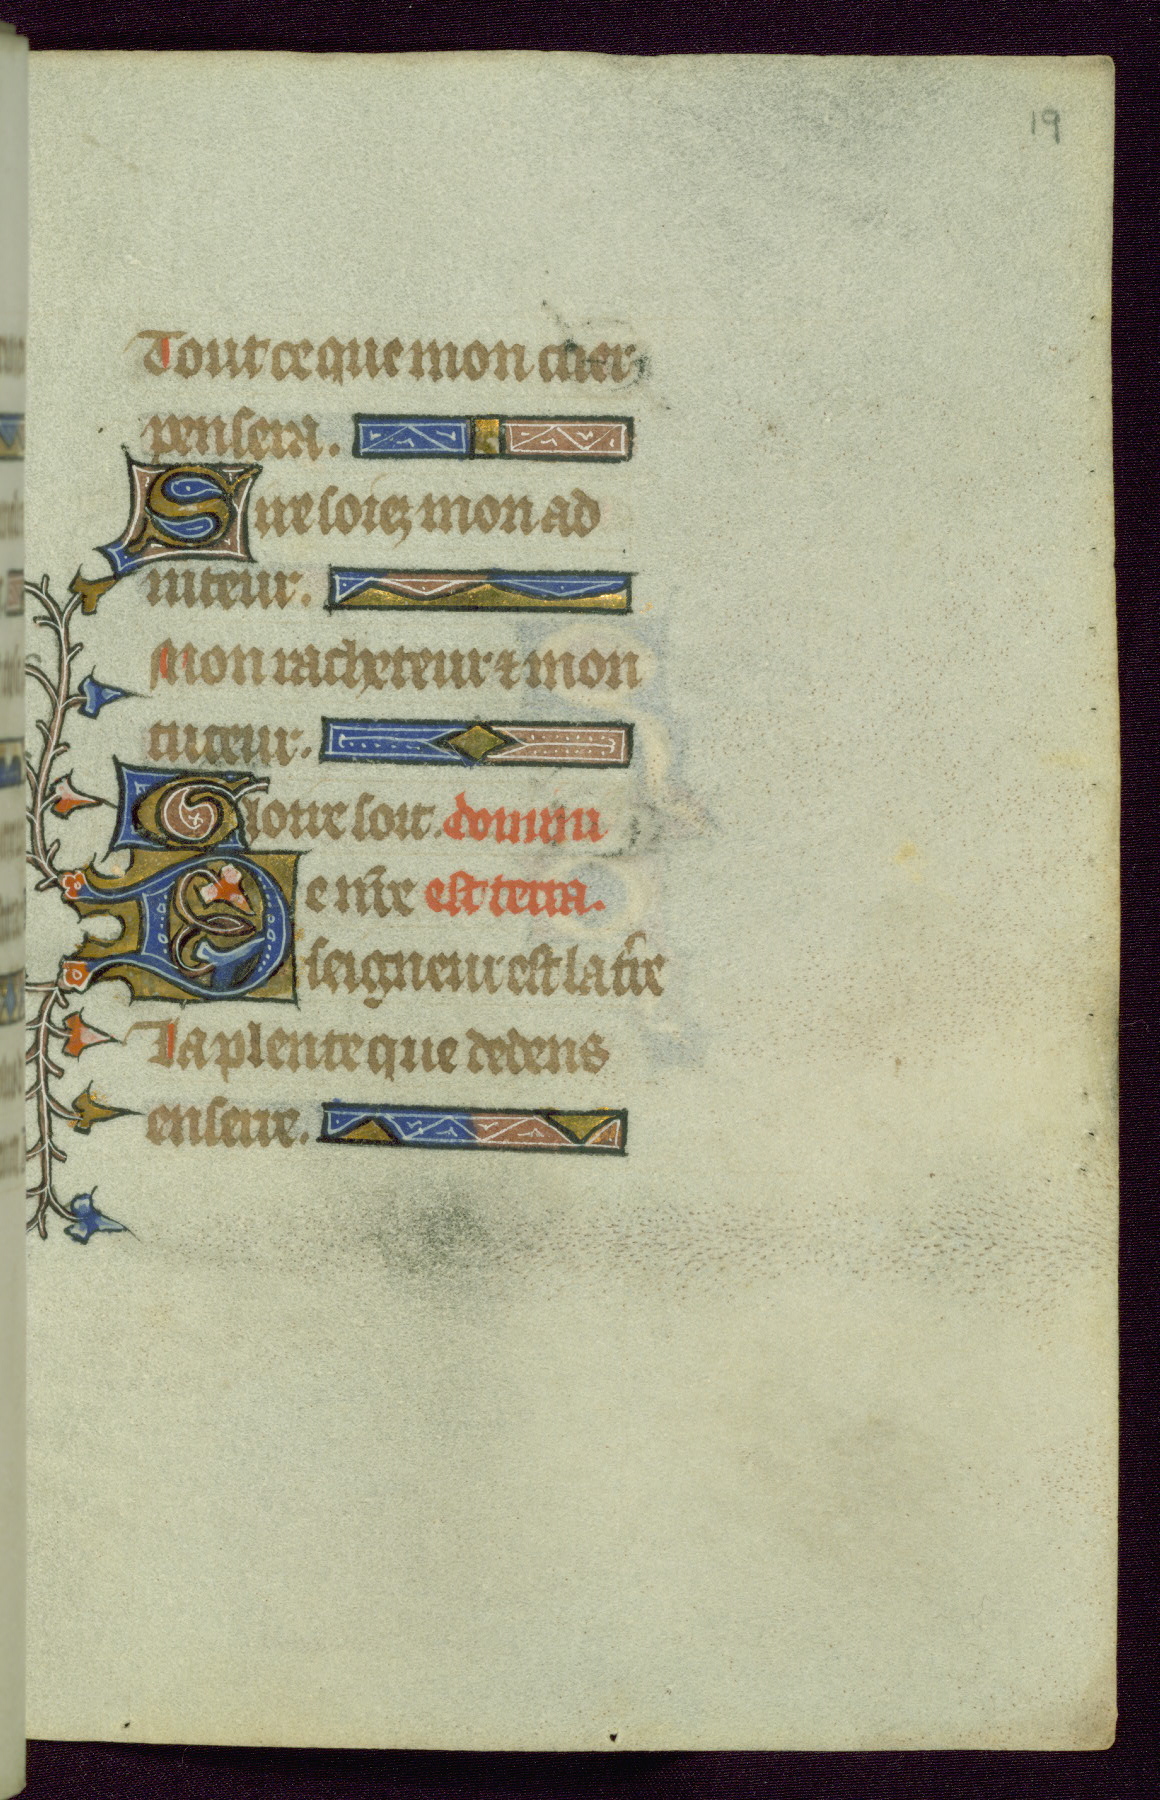 19
Tout ce que mon cuer
pensera.
Sire soiez mon ad
iuteur.
Mon racheteur ⁊ mon
tuteur.
Gloire soit. domini
De nr̄e est terra.
seigneur est la tr̄e
Ia plente que dedens
enserre.